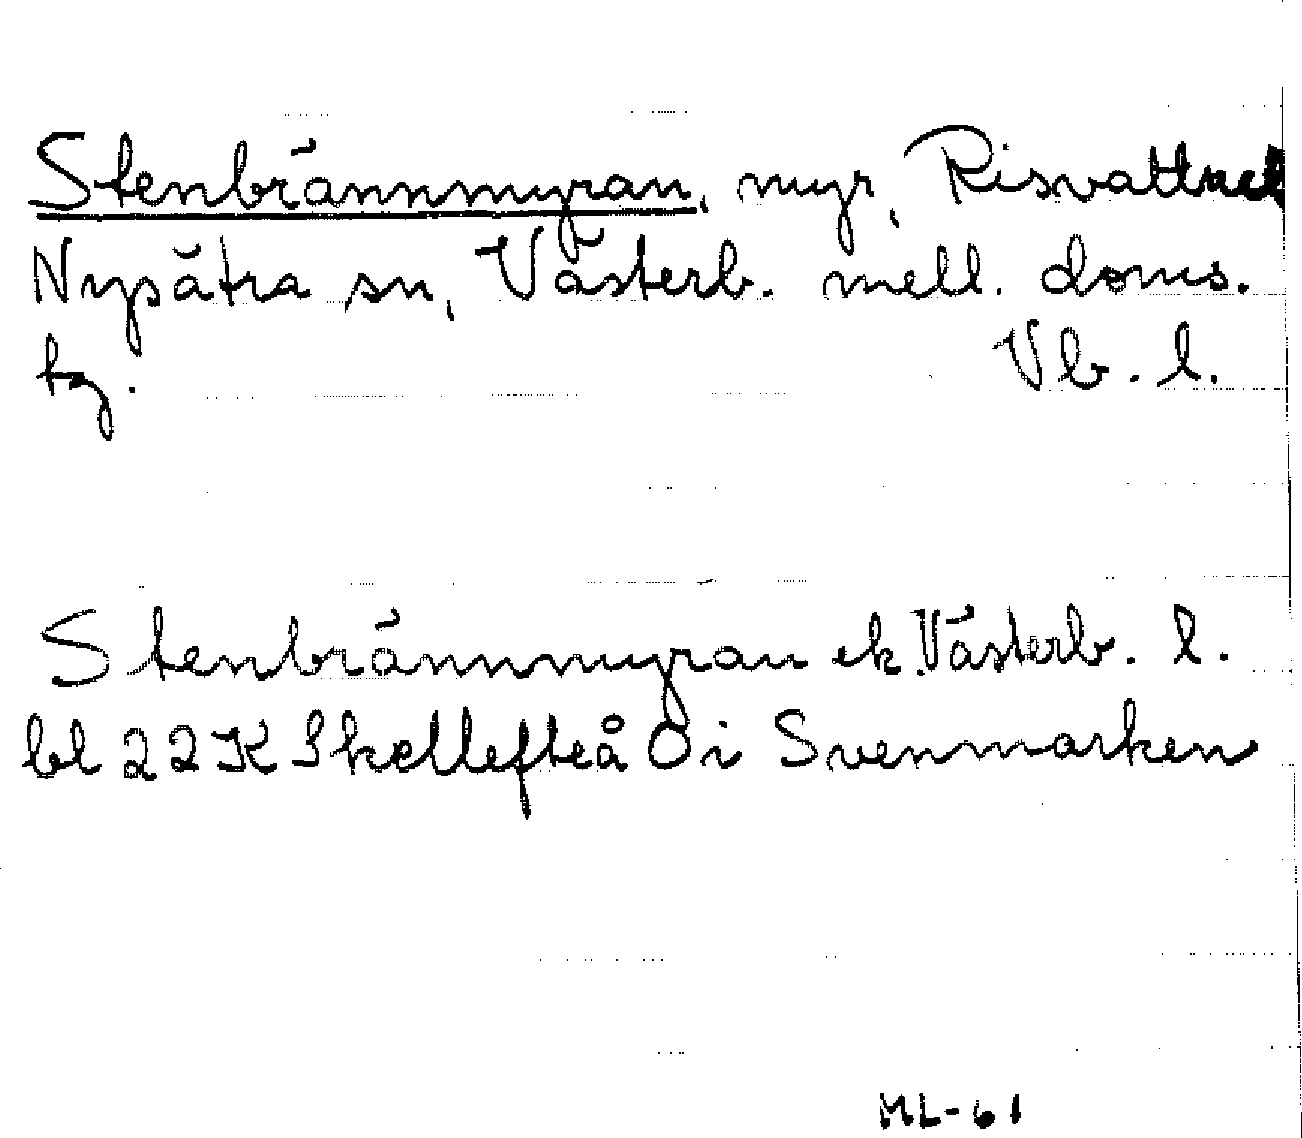 Stenbrännmyran, myr, Risvattnet
Nysätra sn, Västerb. mell. doms.
tg. Vb. l.
Stenbrännmyran ek. Västerb. l.
bl 22K Skellefteå O i Svenmarken
ML-61